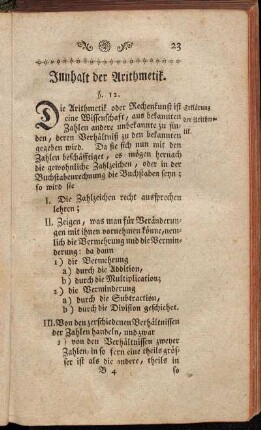 23
Innhalt der Arithmetik.
§. 12.
Die Arithmetik oder Rechenkunst ist
eine Wissenschaft, aus bekannten
Zahlen andere unbekannte zu fin-
den, deren Verhältniß zu den bekannten
gegeben wird. Da sie sich nun mit den
Zahlen beschäfftiget, es mögen hernach
die gewohnliche Zahlzeichen, oder in der
Buchstabenrechnung die Buchstaben seyn;
so wird sie
Erklärung
der Arithme-
tik.
I. Die Zahlzeichen recht aussprechen
lehren;
II. Zeigen, was man für Veränderun-
gen mit ihnen vornehmen könne, nem-
lich die Vermehrung und die Vermin-
derung: da dann
1) die Vermehrung
a) durch die Addition,
b) durch die Multiplication;
2) die Verminderung
a) durch die Subtraction,
b) durch die Division geschiehet.
III. Von den zerschiedenen Verhältnissen
der Zahlen handeln, und zwar
1) von den Verhältnissen zweyer
Zahlen, in so fern eine theils grös-
ser ist als die andere, theils in
B 4
so